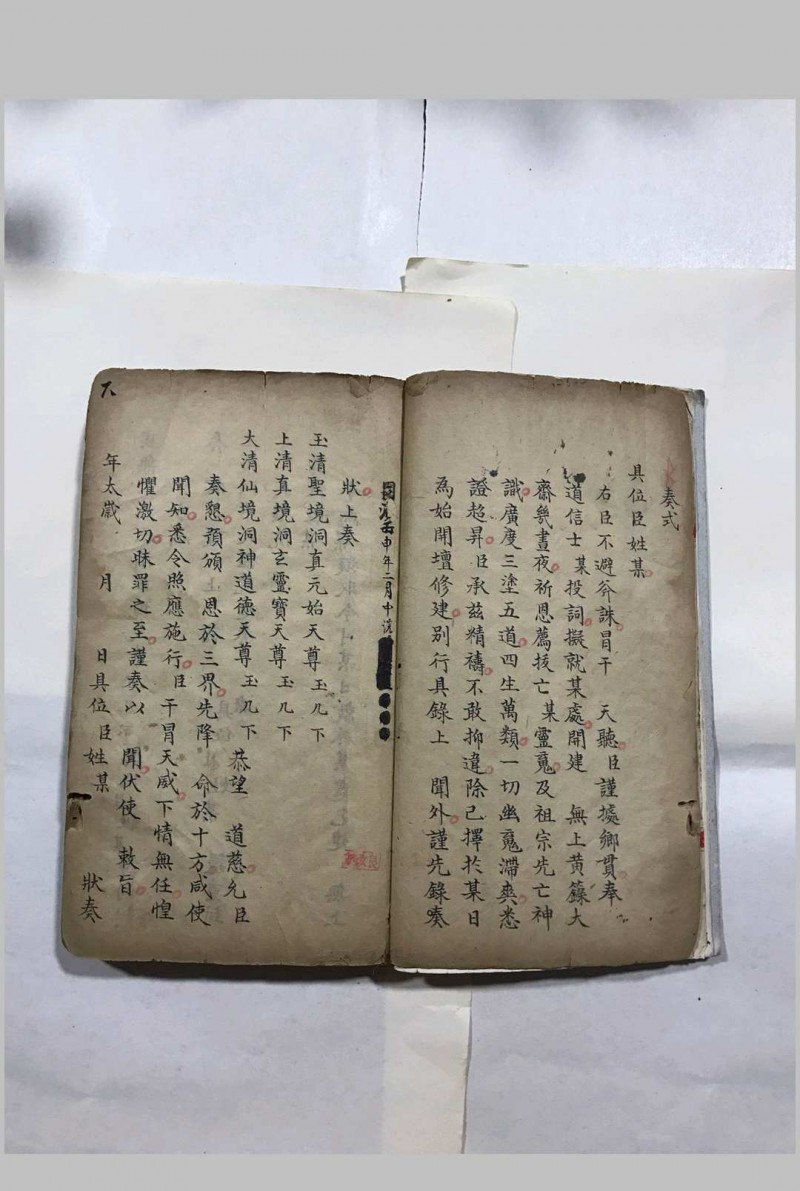 奏式
具位臣姓某
右臣不避斧誅冒干 天聽臣謹據鄉貫奉
道信士某投詞擬就某處開建 無上黃籙大
齋幾晝夜祈恩薦拔亡某靈䰟及祖宗先亡神
識廣度三塗五道四生萬類一切幽䰟滯爽悉
證超昇臣承兹精禱不敢抑違除已擇於某日
為始開壇修建別行具錄上 聞外謹先錄奏
申年二月中浣
狀上奏
玉清聖境洞真元始天尊 玉几下
上清真境洞玄靈寶天尊 玉几下
大清仙境洞神道德天尊 玉几下 恭望 道慈允臣
奏懇預頒 恩於三界先降 命於十方咸使
聞知悉令照應施行臣 干冒天威下情無任惶
懼激切昧罪之至謹奏以 聞伏俟 敕旨
年太歲 月 日具位臣姓某 狀奏